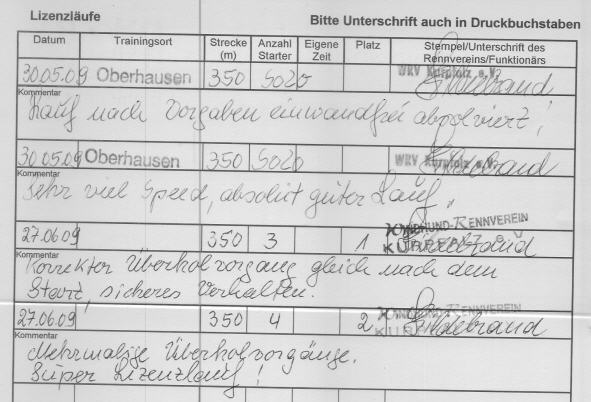 Lizenzläufe Bitte Unterschrift auch in Druckbuchstaben
Datum Trainingsort Strecke (m) Anzahl Starter Eigene Zeit Platz Stempel/Unterschrift des Rennvereins/Funktionärs
30.05.09 Oberhausen 350 Solo WRV Kurpfalz e.V. Hildebrand
Kommentar
Lauf nach Vorgaben einwandfrei absolviert!
30.05.09 Oberhausen 350 Solo WRV Kurpfalz e.V. Hildebrand
Kommentar
Sehr viel Speed, absolut guter Lauf.
27.06.09 350 3 1 WINDHUND-RENNVEREIN KURPFALZ e.V. Hildebrand
Kommentar
Korrekter Überholvorgang gleich nach dem
Start, sicheres Verhalten.
27.06.09 350 4 2 WINDHUND-RENNVEREIN Hildebrand
Kommentar
Mehrmalige Überholvorgänge.
Super Lizenzlauf!